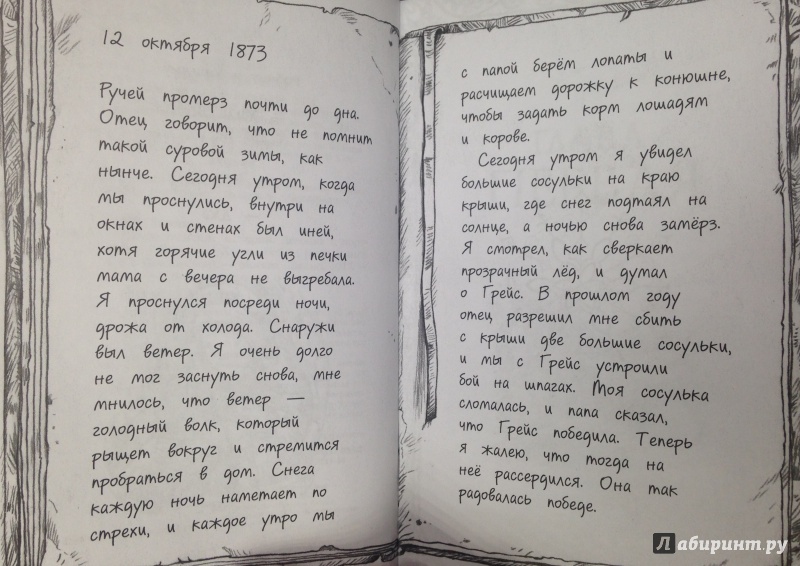 12 октября 1873
Ручей промерз почти до дна.
Отец говорит, что не помнит
такой суровой зимы, как
нынче. Сегодня утром, когда
мы проснулись, внутри на
окнах и стенах был иней,
хотя горячие угли из печки
мама с вечера не выгребала.
Я проснулся посреди ночи,
дрожа от холода. Снаружи
выл ветер. Я очень долго
не мог заснуть снова, мне
мнилось, что ветер —
голодный волк, который
рыщет вокруг и стремится
пробраться в дом. Снега
каждую ночь наметает по
стрехи, и каждое утро мы
с папой берём лопаты и
расчищаем дорожку к конюшне,
чтобы задать корм лошадям
и корове.
Сегодня утром я увидел
большие сосульки на краю
крыши, где снег подтаял на
солнце, а ночью снова замёрз.
Я смотрел, как сверкает
прозрачный лёд, и думал
о Грейс. В прошлом году
отец разрешил мне сбить
с крыши две большие сосульки,
и мы с Грейс устроили
бой на шпагах. Моя сосулька
сломалась, и папа сказал,
что Грейс победила. Теперь
я жалею, что тогда на
неё рассердился. Она так
радовалась победе.
Лабиринт.ру